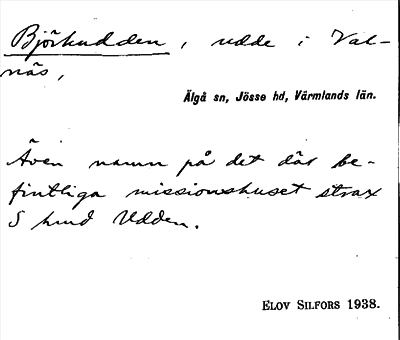 Björkudden, udde i Val-
näs,
Älgå sn, Jösse hd, Värmlands län.
Även namn på det där be-
fintliga missionshuset strax
S Udden.
ELOV SILFORS 1938.